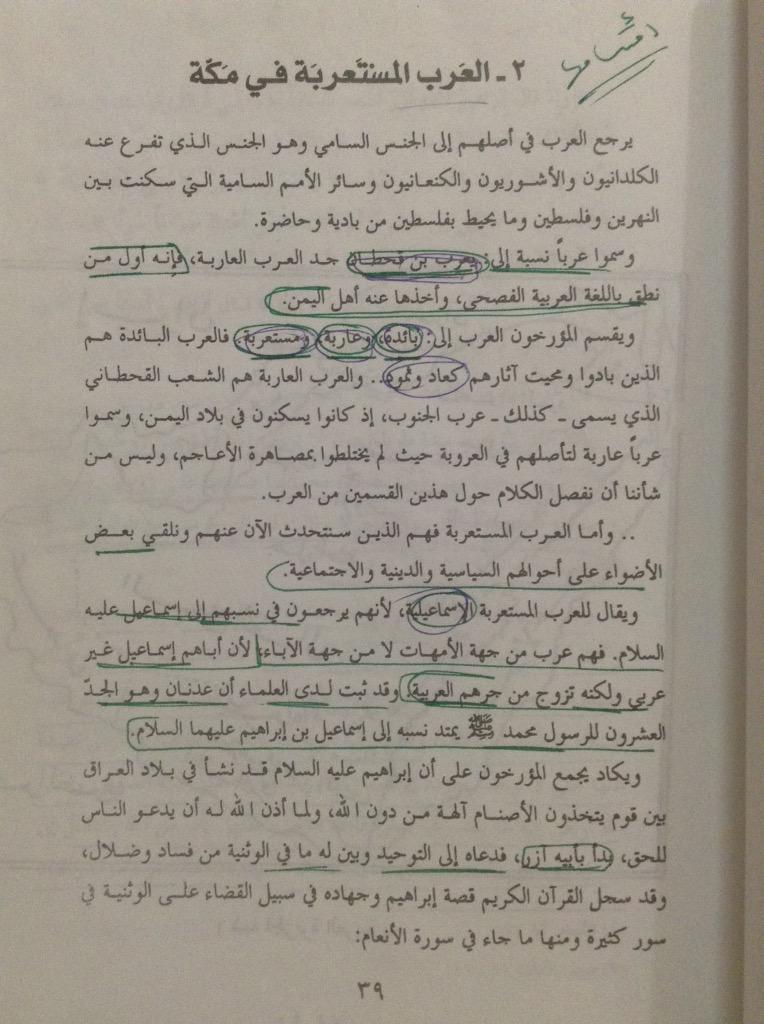 ٢ - العَرب المستَعربَة في مَكّة
يرجع العرب في أصلهم إلى الجنس السامي وهو الجنس الذي تفرع عنه
الكلدانيون والأشوريون والكنعانيون وسائر الأمم السامية التي سكنت بين
النهرين وفلسطين وما يحيط بفلسطين من بادية وحاضرة.
وسموا عرباً نسبة إلى: يعرب بن قحطان جد العرب العاربة، فإنه أول من
نطق باللغة العربية الفصحى، وأخذها عنه أهل اليمن.
ويقسم المؤرخون العرب إلى: بائدة، وعاربة، ومستعربة. فالعرب البائدة هم
الذين بادوا ومحيت آثارهم كعاد وثمود.. والعرب العاربة هم الشعب القحطاني
الذي يسمى - كذلك - عرب الجنوب، إذ كانوا يسكنون في بلاد اليمن، وسموا
عرباً عاربة لتأصلهم في العروبة حيث لم يختلطوا بمصاهرة الأعاجم، وليس من
شأننا أن نفصل الكلام حول هذين القسمين من العرب.
.. وأما العرب المستعربة فهم الذين سنتحدث الآن عنهم ونلقي بعض
الأضواء على أحوالهم السياسية والدينية والاجتماعية.
ويقال للعرب المستعربة الإسماعيلية، لأنهم يرجعون في نسبهم إلى إسماعيل عليه
السلام. فهم عرب من جهة الأمهات لا من جهة الآباء، لأن أباهم إسماعيل غير
عربي ولكنه تزوج من جرهم العربية. وقد ثبت لدى العلماء أن عدنان وهو الجدّ
العشرون للرسول محمد ﷺ يمتد نسبه إلى إسماعيل بن إبراهيم عليهما السلام.
ويكاد يجمع المؤرخون على أن إبراهيم عليه السلام قد نشأ في بلاد العراق
بين قوم يتخذون الأصنام آلهة من دون الله، ولما أذن الله له أن يدعو الناس
للحق، بدأ بأبيه آزر، فدعاه إلى التوحيد وبين له ما في الوثنية من فساد وضلال،
وقد سجل القرآن الكريم قصة إبراهيم وجهاده في سبيل القضاء على الوثنية في
سور كثيرة ومنها ما جاء في سورة الأنعام:
٣٩